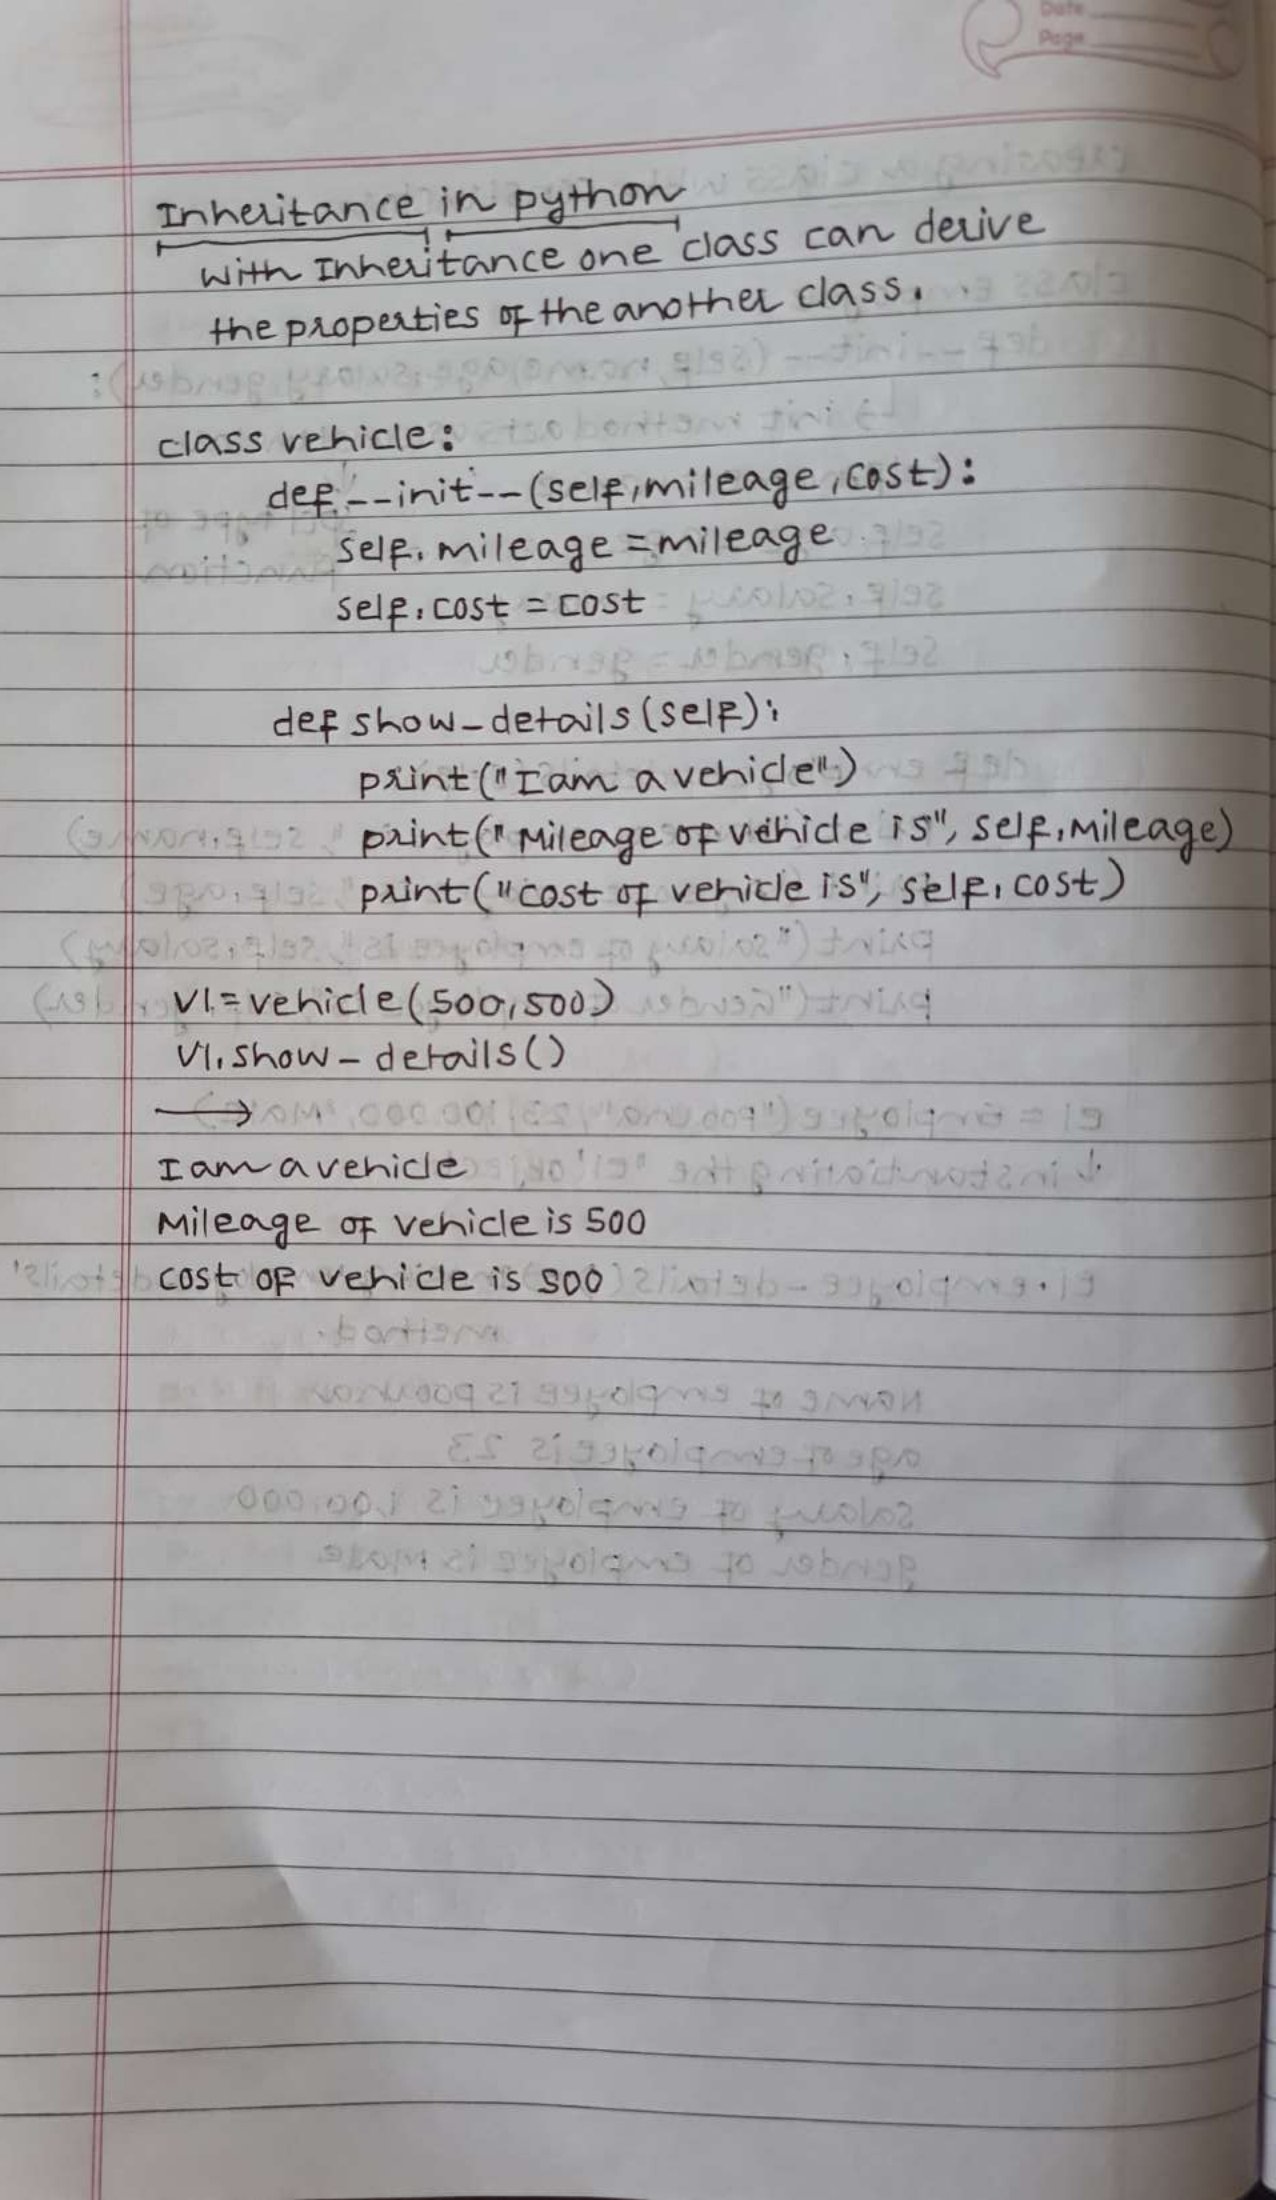 Date
Page
Inheritance in python
with Inheritance one class can derive
the properties of the another class.
class vehicle:
def __init__(self,mileage,cost):
self.mileage = mileage
self.cost = cost
def show_details(self):
print("I am a vehicle")
print("Mileage of vehicle is", self.Mileage)
print("cost of vehicle is", self.cost)
V1=vehicle(500,500)
V1.show_details()
→
I am a vehicle
Mileage of vehicle is 500
cost of vehicle is 500